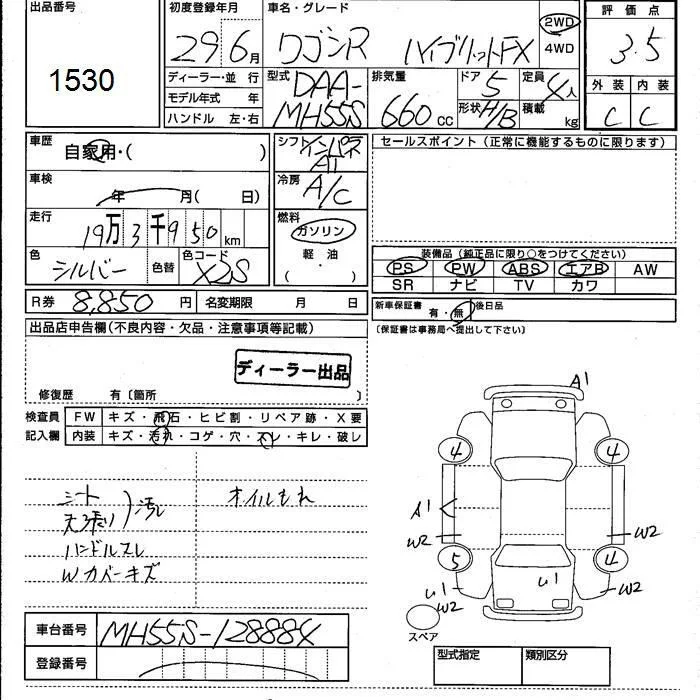 出品番号
1530
初度登録年月
29 6月
車名・グレード
ワゴンR ハイブリットFX
2WD
4WD
評価点
3.5
ディーラー・並 行
モデル年式 年
ハンドル 左・右
型式
DAA-
MH55S
排気量
660 cc
ドア
5
形状 H/B
定員
4人
積載
kg
外装 内装
C C
車歴
自家用・( )
車検
年 月( 日)
走行
19万3千950 km
色
シルバー
色替
色コード
シフト
インパネ
A1
冷房
A/C
燃料
ガソリン
軽・油
( ・ )
セールスポイント(正常に機能するものに限ります)
装備品(純正品に限り○をつけてください)
PS PW ABS エアB AW
SR ナビ TV カワ
R券 8,850 円 名変期限 月 日
新車保証書 有・無 後日品
(保証書は事務局へ提出して下さい)
出品店申告欄(不良内容・欠品・注意事項等記載)
ディーラー出品
修復歴 有〔箇所 〕
検査員
記入欄
FW キズ・飛石・ヒビ割・リペア跡・X要
内装 キズ・汚れ・コゲ・穴・スレ・キレ・破レ
シート
天張り
汚れ
ハンドルスレ
Wカバーキズ
オイルもれ
A1
4 4
A1
W2 W2
5 4
U1
W2
U1
W2
スペア
車台番号 MH55S-128884
登録番号
型式指定 類別区分